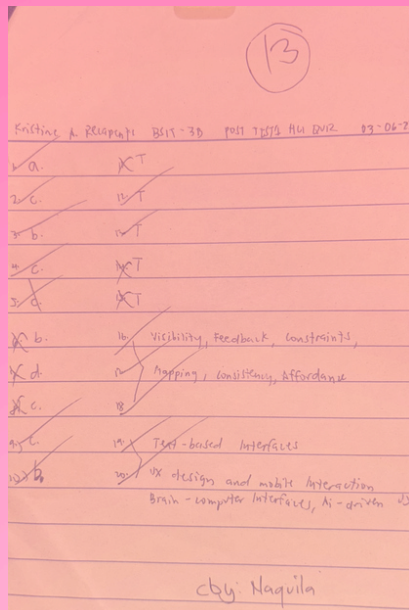 13
Kristine A. Recaparte BSIT-3D POST TEST HCI QUIZ 03-06-2
1. a. 11. T
2. c. 12. T
3. b. 13. T
4. c. 14. T
5. d. 15. T
6. b. 16. Visibility, Feedback, constraints,
7. d. 17. Mapping, consistency, Affordance
8. c. 18.
9. c. 19. Text-based Interfaces
10. b 20. UX design and mobile Interaction
Brain-computer Interfaces, Ai-driven
cby: Naquila